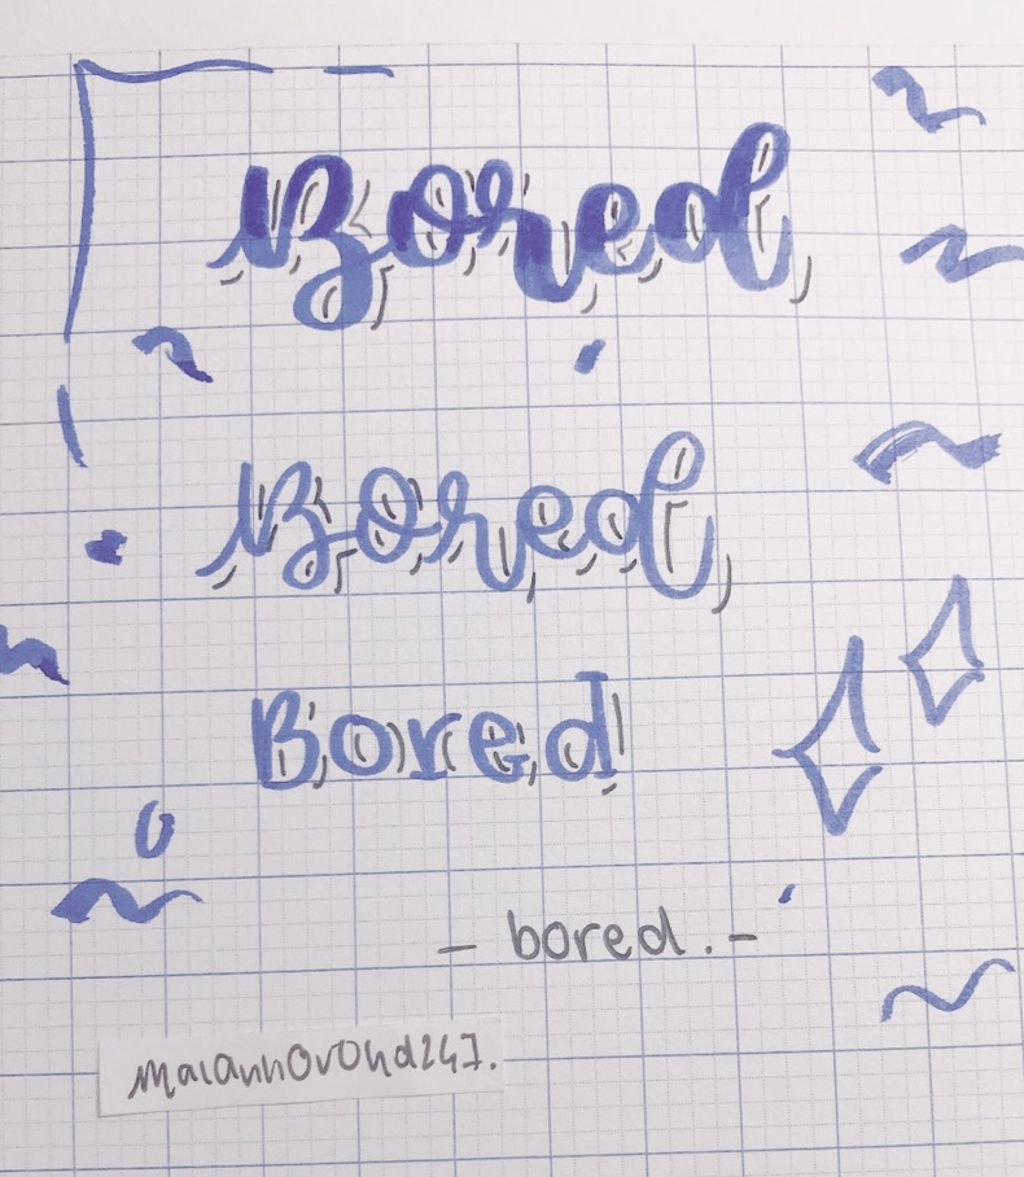 Bored
Bored
Bored
- bored. -
maianhovohd247.